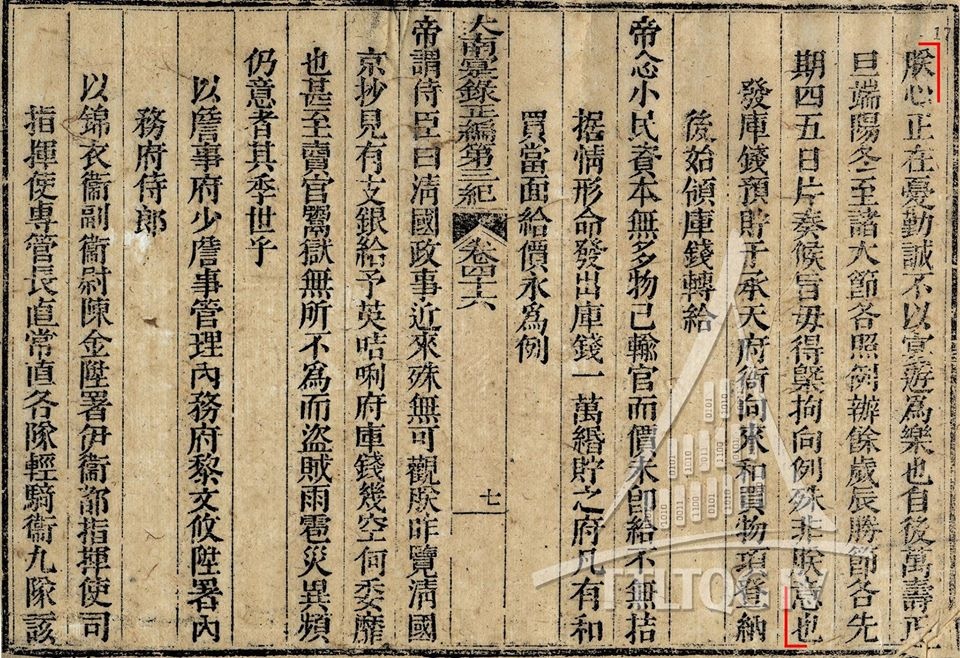 17
朕心正在憂勤誠不以宴遊為樂也自後萬壽正
旦端陽冬至諸大節各照例辦餘歲辰勝節各先
期四五日片奏候旨毋得槩拘向例殊非朕意也
發庫錢預貯于承天府衙向來和買物項登納
後始領庫錢轉給
帝念小民資本無多物已輸官而價未卽給不無拮
据情形命發出庫錢一萬緡貯之府凡有和
買當面給價永為例
大南寔錄正編第三紀 卷四十六 七
帝謂侍臣曰淸國政事近來殊無可觀朕昨覽淸國
京抄見有支銀給予英咭唎府庫錢幾空何委靡
也甚至賣官鬻獄無所不為而盜賊雨雹災異頻
仍意者其季世乎
以詹事府少詹事管理內務府黎文攸陞署內
務府侍郎
以錦衣衞副衞尉陳金陞署伊衞都指揮使司
指揮使專管長直常直各隊輕騎衞九隊該
TTLTQG IV